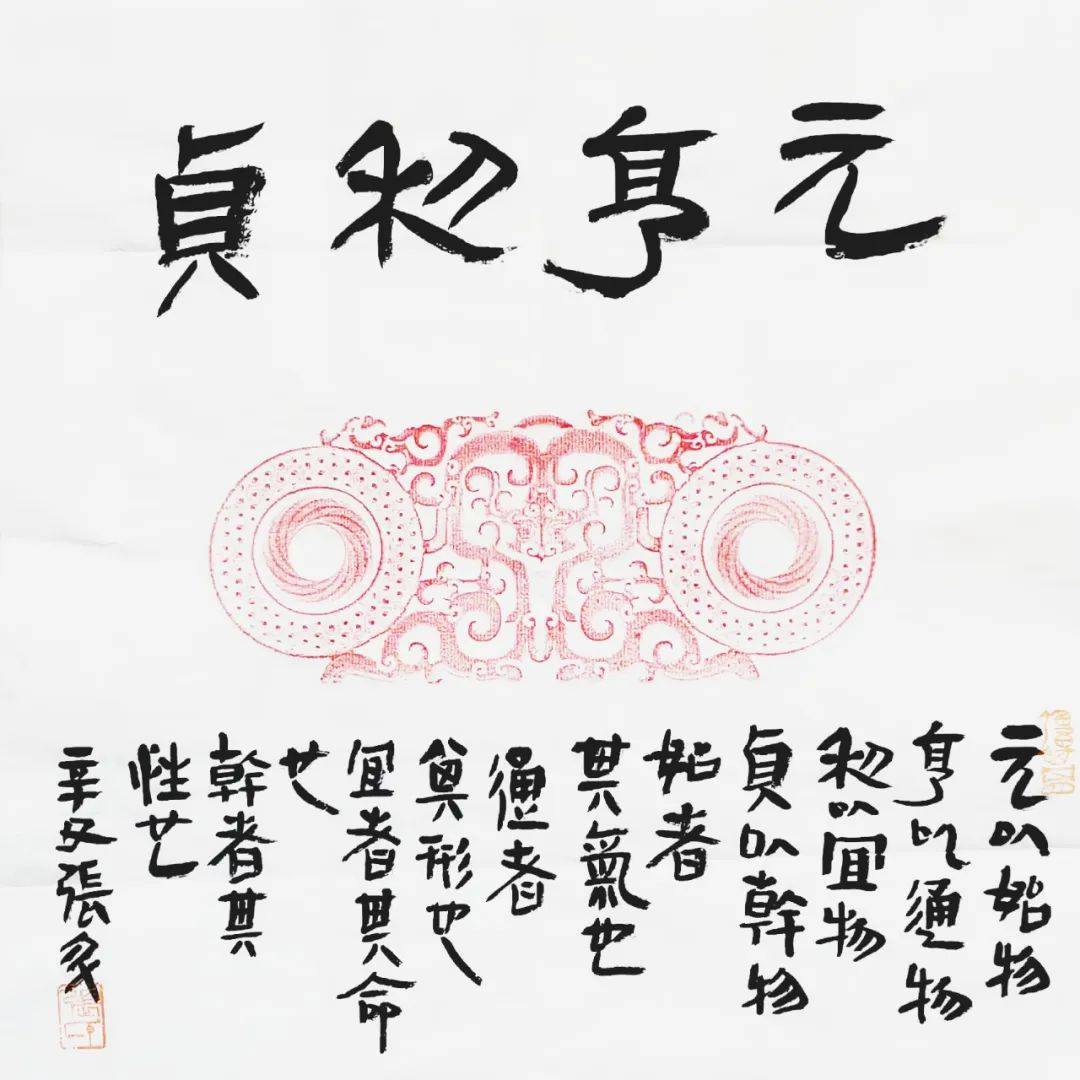 元亨利貞
元以始物
亨以通物
利以宜物
貞以幹物
始者
其氣也
通者
其形也
宜者其命
也
幹者其
性也
辛丑張